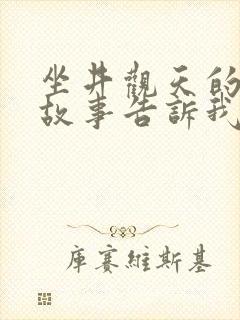 坐井觀天的
故事告訴我
庫賽維斯基